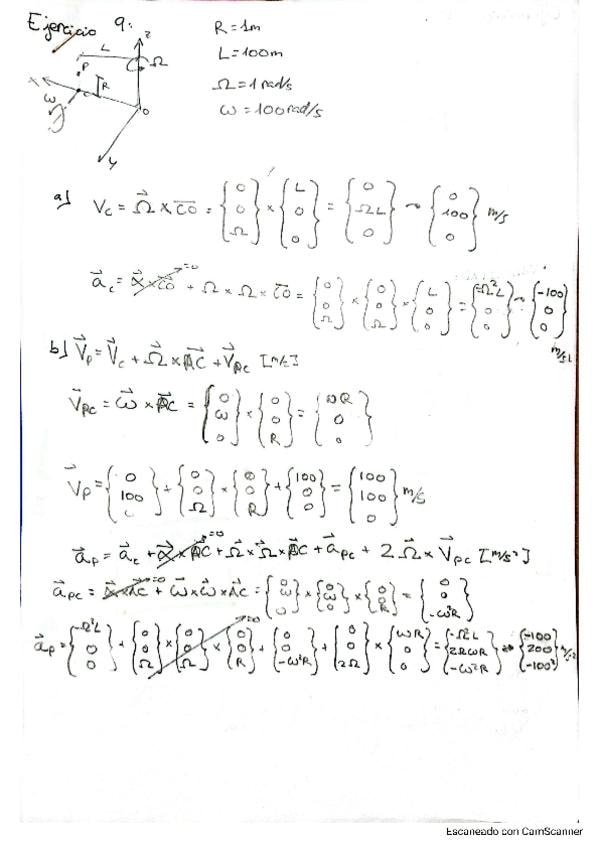 Ejercicio 9:
R = 1m
L = 100m
Ω = 1 rad/s
ω = 100 rad/s
z
L
Ω
P
R
x
C
ω
O
y
a) V_C = Ω⃗ × CO = {0 0 Ω} × {L 0 0} = {0 ΩL 0} → {0 100 0} m/s
a⃗_C = α⃗ × CO =0 + Ω × Ω × CO = {0 0 Ω} × {0 0 Ω} × {L 0 0} = {-Ω²L 0 0} → {-100 0 0} m/s²
b) V⃗_P = V⃗_C + Ω⃗ × PC + V⃗_PC [m/s]
V⃗_PC = ω⃗ × PC = {0 ω 0} × {0 0 R} = {ωR 0 0}
V⃗_P = {0 100 0} + {0 0 Ω} × {0 0 R} + {100 0 0} = {100 100 0} m/s
a⃗_P = a⃗_C + α⃗ × PC =0 + Ω⃗ × Ω⃗ × PC + a⃗_PC + 2 Ω⃗ × V⃗_PC [m/s²]
a⃗_PC = α⃗ × PC =0 + ω⃗ × ω⃗ × PC = {0 ω 0} × {0 ω 0} × {0 0 R} = {0 0 -ω²R}
a⃗_P = {-Ω²L 0 0} + {0 0 Ω} × {0 0 Ω} × {0 0 R} =0 + {0 0 -ω²R} + {0 0 2Ω} × {ωR 0 0} = {-Ω²L 2ΩωR -ω²R} → {-100 200 -100²} m/s²
Escaneado con CamScanner